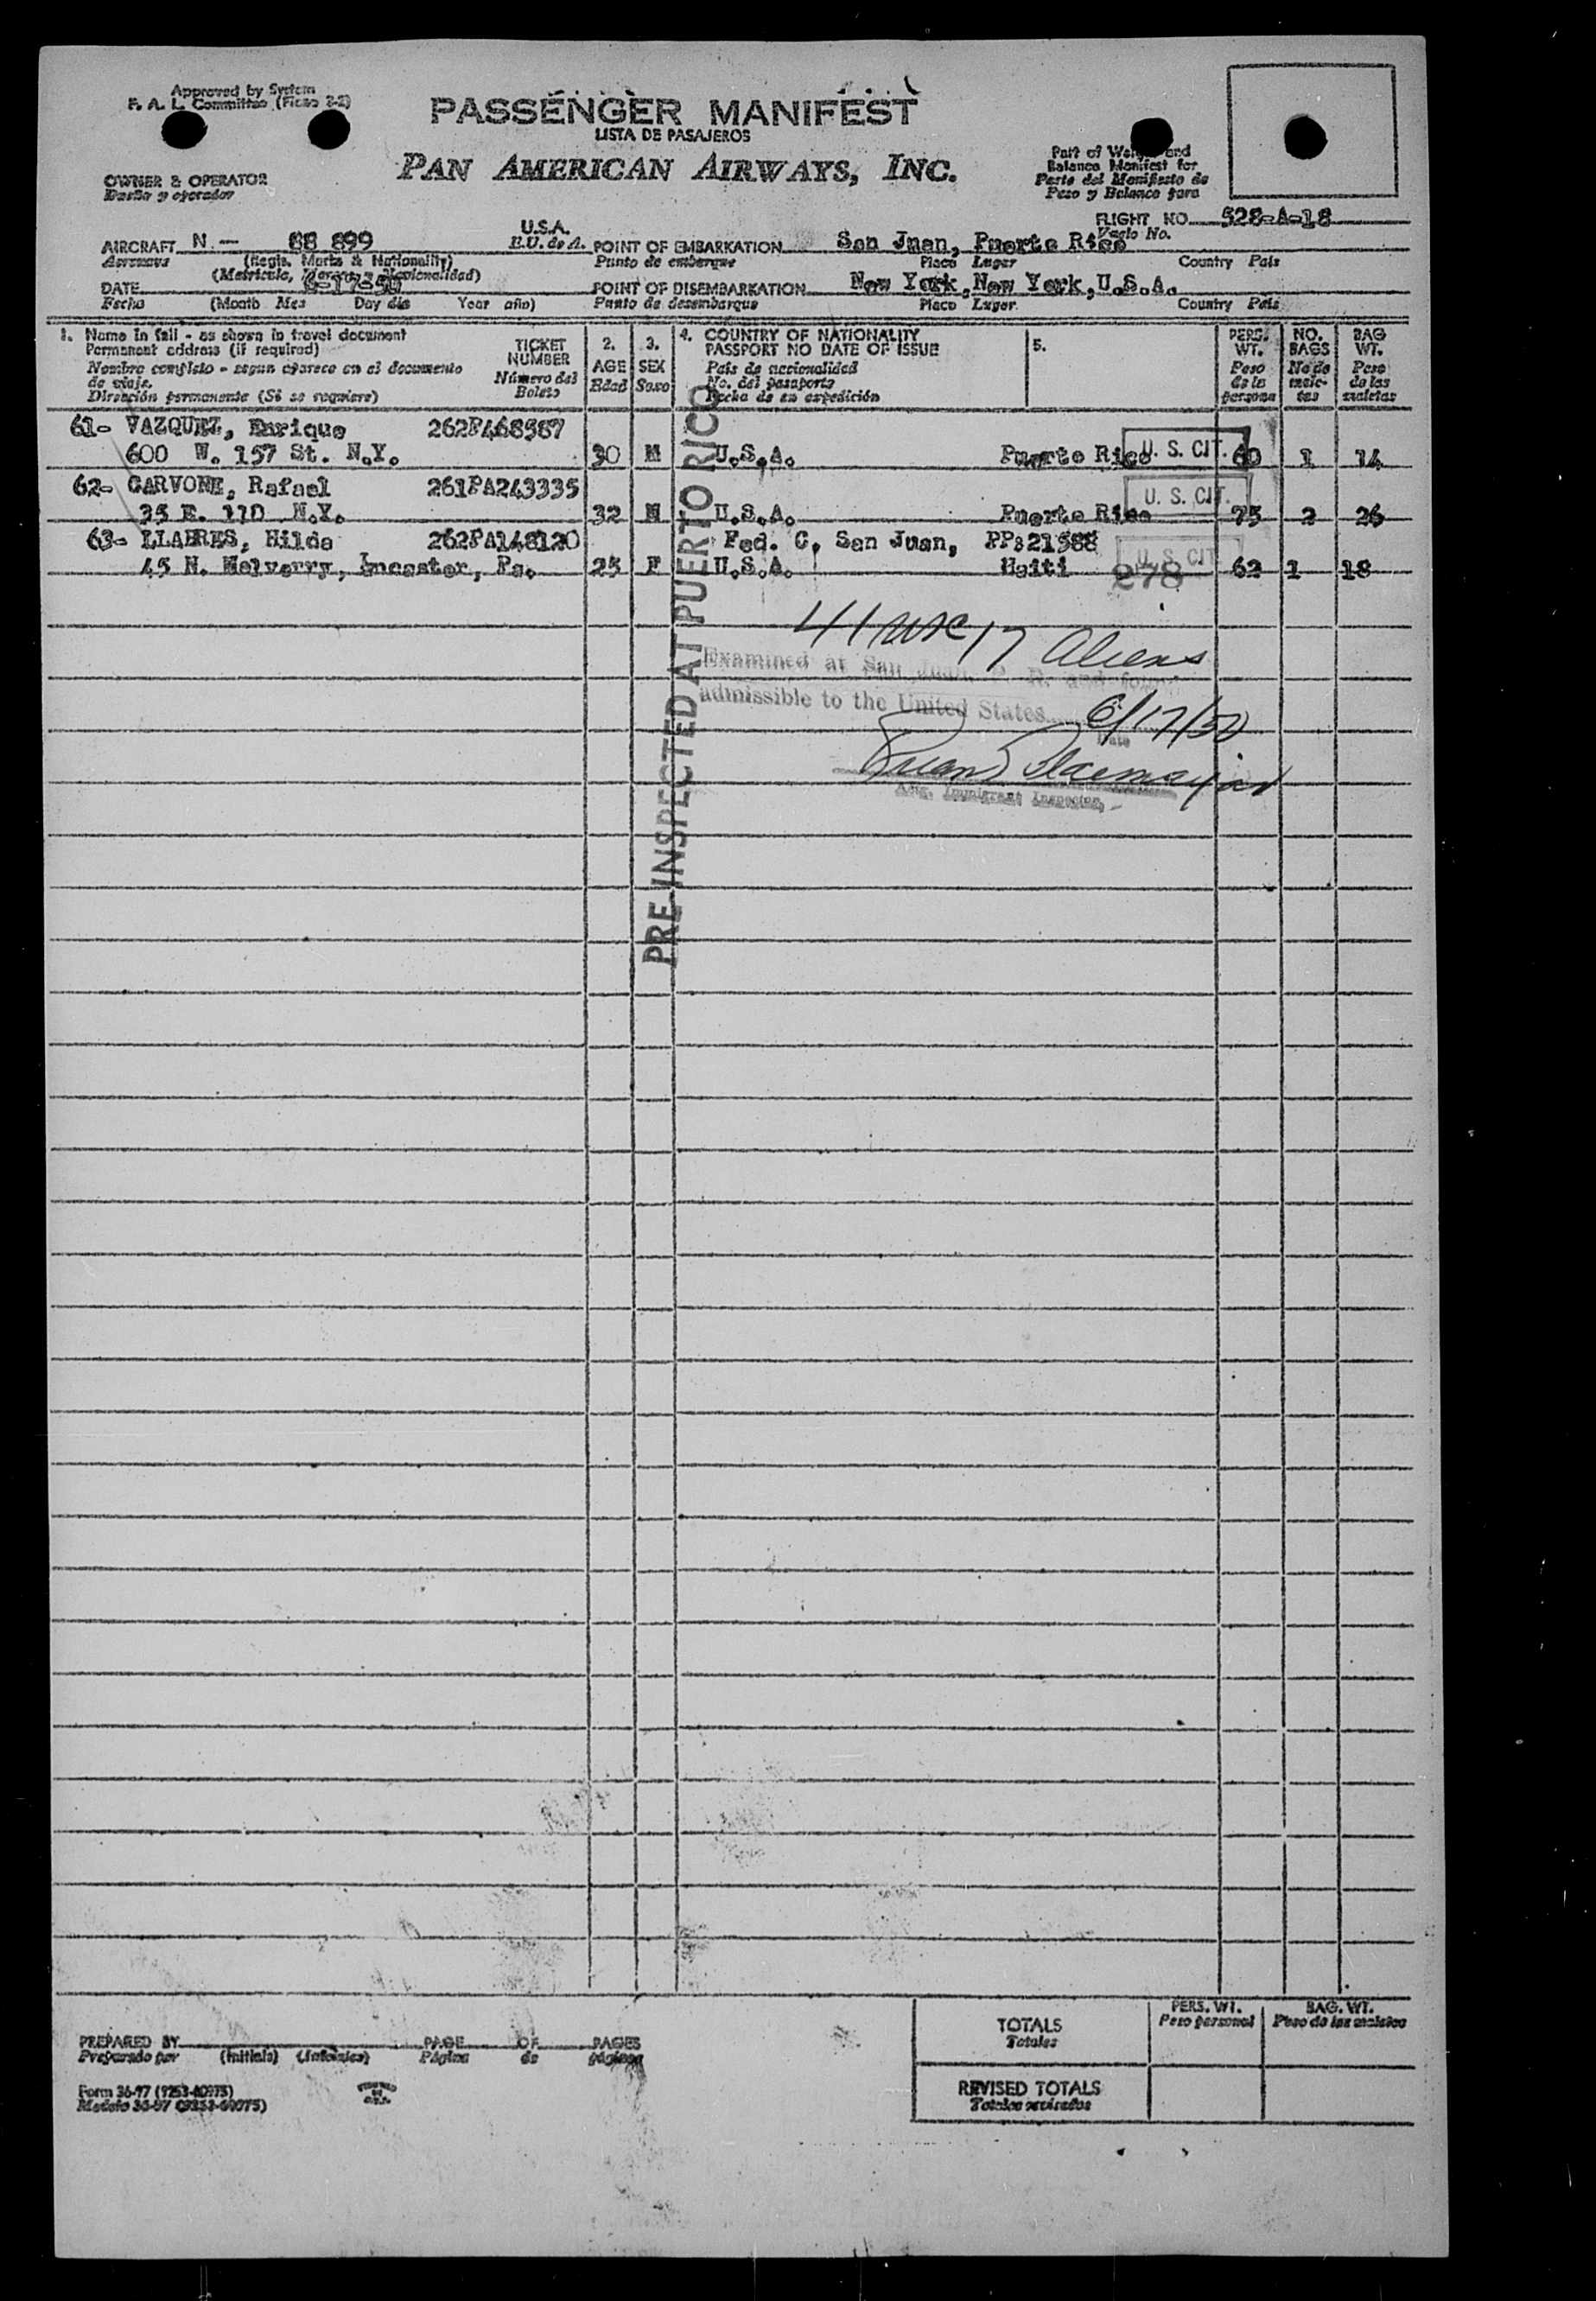 Approved by System
F. A. L. Committee (Ficao 2-2)
PASSENGER MANIFEST
LISTA DE PASAJEROS
PAN AMERICAN AIRWAYS, INC.
OWNER & OPERATOR
Dueño y operador
Part of Weight and
Balance Manifest for
Parte del Manifiesto de
Peso y Balance para
FLIGHT NO. 528-A-18
Vuelo No.
AIRCRAFT N - 88 899 U.S.A.
Aeronave (Regis. Marks & Nationality) E.U. de A.
(Matricula, Marcas y Nacionalidad)
POINT OF EMBARKATION San Juan, Puerto Rico
Punto de embarque Place Lugar Country País
DATE 6-17-50
Fecha (Month Mes Day día Year año)
POINT OF DISEMBARKATION New York, New York, U.S.A.
Punto de desembarque Place Lugar Country País
1. Name in full - as shown in travel document
Permanent address (if required)
Nombre completo - segun aparece en el documento
de viaje.
Dirección permanente (Si se requiere)
TICKET
NUMBER
Número del
Boleto
2.
AGE
Edad
3.
SEX
Sexo
4. COUNTRY OF NATIONALITY
PASSPORT NO DATE OF ISSUE
País de nacionalidad
No. del pasaporte
Fecha de su expedición
5.
PERS.
WT.
Peso
de la
persona
NO.
BAGS
No de
male-
tas
BAG
WT.
Peso
de las
maletas
61- VAZQUEZ, Enrique 262PA68587
600 W. 157 St. N.Y. 30 M U.S.A. Puerto Rico U. S. CIT. 60 1 14
62- CARVONE, Rafael 261PA243335
35 E. 110 N.Y. 32 M U.S.A. Puerto Rico U. S. CIT. 75 2 26
63- LLABRES, Hilda 262PA148120 Fed. C, San Juan, PP:21588
45 N. Melverry, Lncaster, Pa. 25 F U.S.A. Haiti U. S. CIT 278 62 1 18
PRE-INSPECTED AT PUERTO RICO
41 USC 17 Aliens
Examined at San Juan, P. R. and found
admissible to the United States 6/17/50
Date
Immigrant Inspector
PREPARED BY PAGE OF PAGES
Preparado por (Initials) (Iniciales) Página de páginas
Form 36-97 (9253-60975)
Modelo 36-97 (9253-60975)
PERS. WT.
Peso personal
BAG. WT.
Peso de las maletas
TOTALS
Totales
REVISED TOTALS
Totales revisados